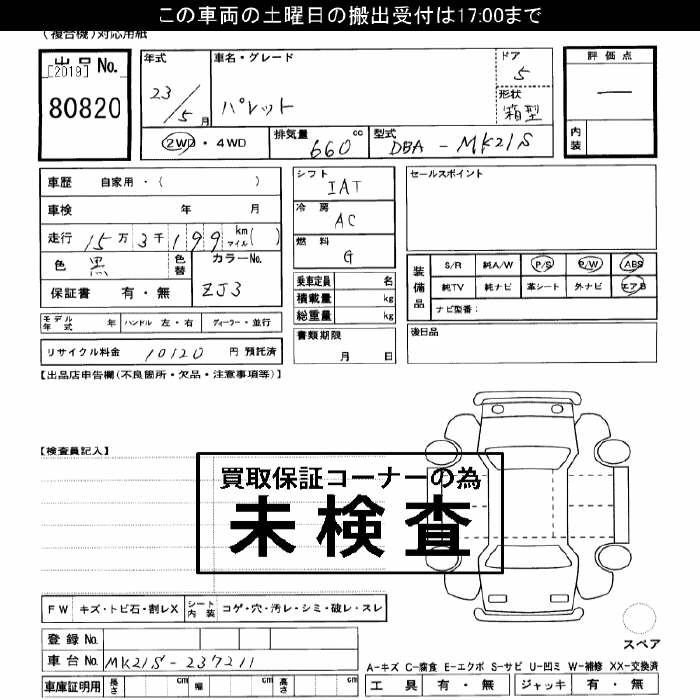 この車両の土曜日の搬出受付は17:00まで
(複合機)対応用紙
出品 No.
[2019]
80820
年式 23/5月
車名・グレード
パレット
ドア 5
形状 箱型
評価点
—
内装
2WD・4WD
排気量 660 cc
型式 DBA-MK21S
車歴 自家用・( )
車検 年 月
走行 15万3千199 km マイル( )
色 黒
色替
カラーNo.
ZJ3
保証書 有・無
シフト
IAT
冷房
AC
燃料
G
乗車定員 名
積載量 kg
総重量 kg
書類期限
月 日
セールスポイント
装備品
S/R 純A/W P/S P/W ABS
純TV 純ナビ 革シート 外ナビ エアB
ナビ型番:
後日品
モデル年式 年 ハンドル 左・右 ディーラー・並行
リサイクル料金 10120 円 預託済
【出品店申告欄(不良箇所・欠品・注意事項等)】
【検査員記入】
買取保証コーナーの為
未検査
FW キズ・トビ石・割レX シート内装 コゲ・穴・汚レ・シミ・破レ・スレ
登録 No.
車台 No. MK21S-237211
車庫証明用 長さ cm 幅 cm 高さ cm
スペア
A-キズ C-腐食 E-エクボ S-サビ U-凹ミ W-補修 XX-交換済
工具 有・無 ジャッキ 有・無